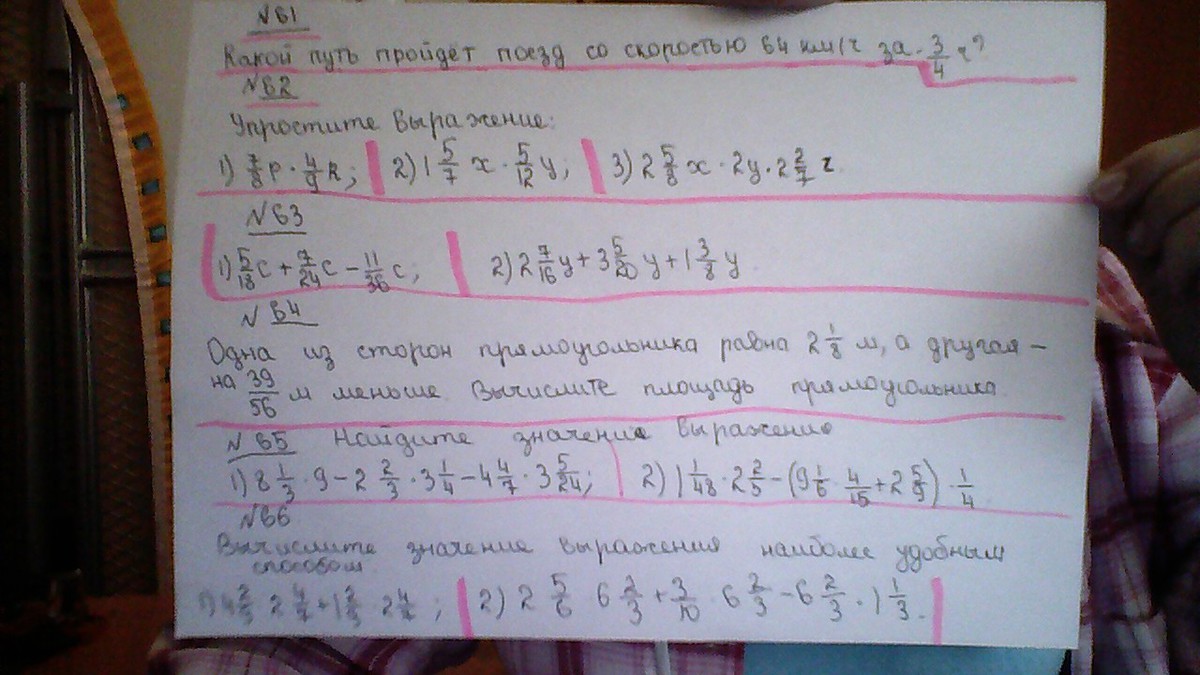 №61
Какой путь пройдёт поезд со скоростью 64 км/ч за 3/4 ч?
№62
Упростите выражение:
1) 7/8 p · 4/9 k; 2) 1 5/7 x · 5/12 y; 3) 2 5/8 x · 2y · 2 2/7 z.
№63
1) 5/18 c + 7/24 c - 11/36 c; 2) 2 7/16 y + 3 5/20 y + 1 3/8 y.
№64
Одна из сторон прямоугольника равна 2 1/8 м, а другая -
на 39/56 м меньше. Вычислите площадь прямоугольника.
№65 Найдите значение выражение
1) 8 1/3 · 9 - 2 2/3 · 3 1/4 - 4 4/7 · 3 5/24; 2) 1 1/48 · 2 2/5 - (9 1/6 · 4/15 + 2 5/9) · 1/4
№66
Вычислите значение выражения наиболее удобным
способом.
1) 4 2/3 2 4/7 + 1 2/3 2 4/7; 2) 2 5/6 6 2/3 + 3/10 · 6 2/3 - 6 2/3 · 1 1/3.